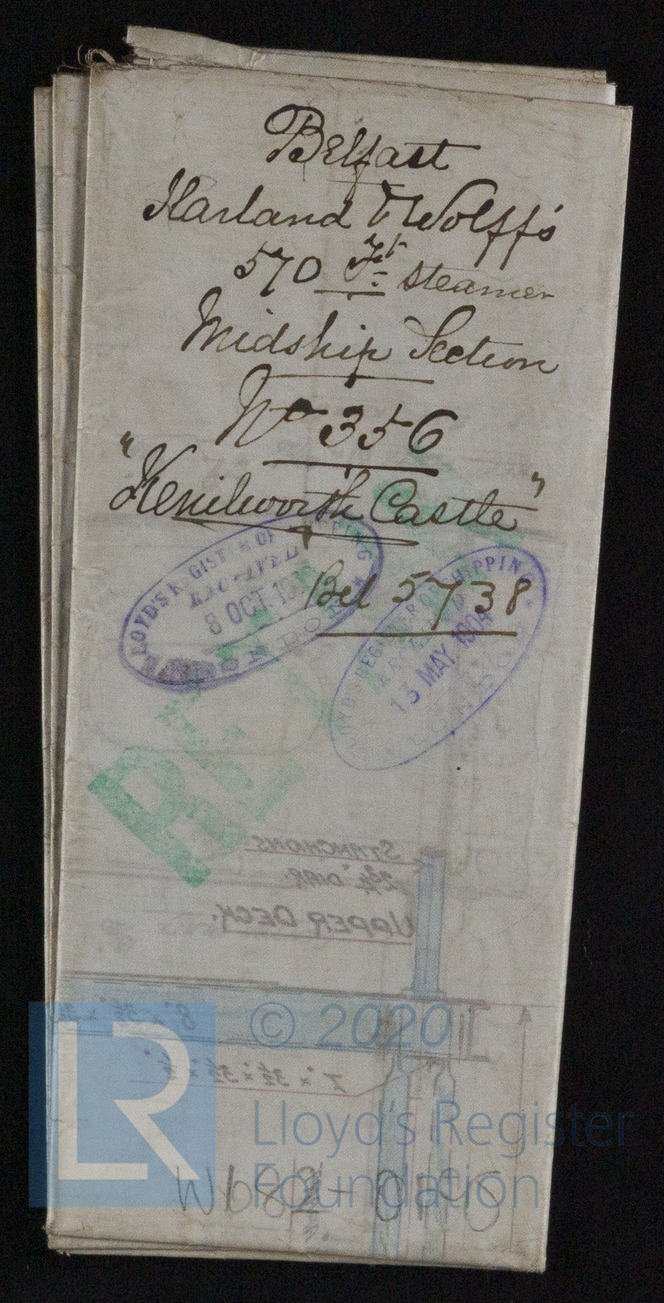 Belfast
Harland & Wolff's
570 Ft. Steamer
Midship Section
No 356
"Kenilworth Castle"
LLOYD'S REGISTER OF SHIPPING
8 OCT. LONDON
Bel 5738
LLOYD'S REGISTER OF SHIPPING
13 MAY. 1904
STANCHIONS
DIAR.
UPPER DECK.
© 2020
LR
Lloyd's Register
Foundation